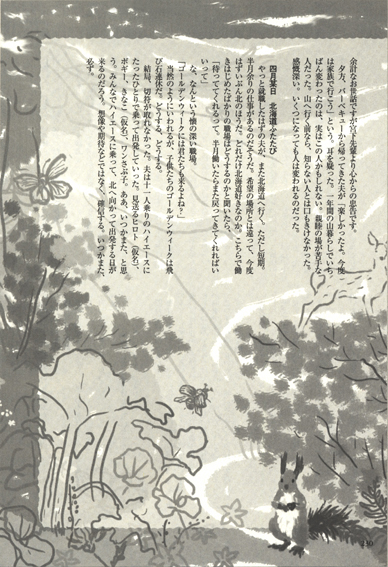 余計なお世話ですが宮下先輩より心からの忠告です。
夕方、バーベキューから帰ってきた夫が「楽しかったよ。今度
は家族で行こう」という。耳を疑った。一年間の山暮らしでいち
ばん変わったのは、実はこの人かもしれない。親睦の場が苦手な
人だった。山へ行く前なら、知らない人とは口もきけなかった。
感慨深い。いくつになっても人は変われるのだった。
四月某日　北海道ふたたび
やっと就職したはずの夫が、また北海道へ行く。ただし短期。
半月余りの仕事があるのだそうだ。希望の場所とは違って、今度
はずいぶん北のほうだ。どれだけ北海道好きなのか。こちらで働
きはじめたばかりの職場はどうするのかと聞いたら、
「待っててくれるって。半月働いたらまた戻ってきてくれればい
いって」
な、なんという懐の深い職場。
「ゴールデンウィークには君たちも来るよね？」
当然のようにいわれるが、子供たちのゴールデンウィークは飛
び石連休だ。どうする、どうする。
結局、切符が取れなかった。夫は十一人乗りのハイエースに
たったひとりで乗って出発していった。見送るヒロト（仮名）、
ボギー、きなこ（仮名）、ワンさぶ子。ああ、いつかまた、と思
う。みんなでハイエースに乗って、北へ向かって出発する日が
来るのだろう。想像や期待などではなく、確信する。いつかまた、
必ず。
130